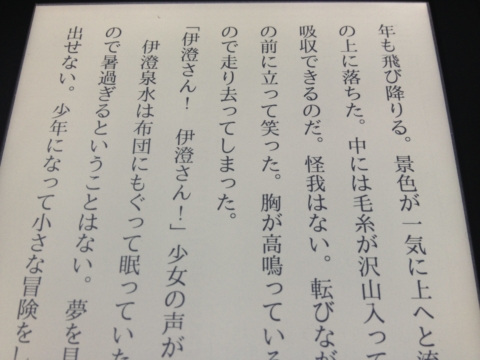 年も飛び降りる。景色が一気に上へと流
の上に落ちた。中には毛糸が沢山入って
吸収できるのだ。怪我はない。転びなが
の前に立って笑った。胸が高鳴っている
ので走り去ってしまった。
「伊澄さん！　伊澄さん！」少女の声が
伊澄泉水は布団にもぐって眠っていた
ので暑過ぎるということはない。夢を見
出せない。少年になって小さな冒険をし